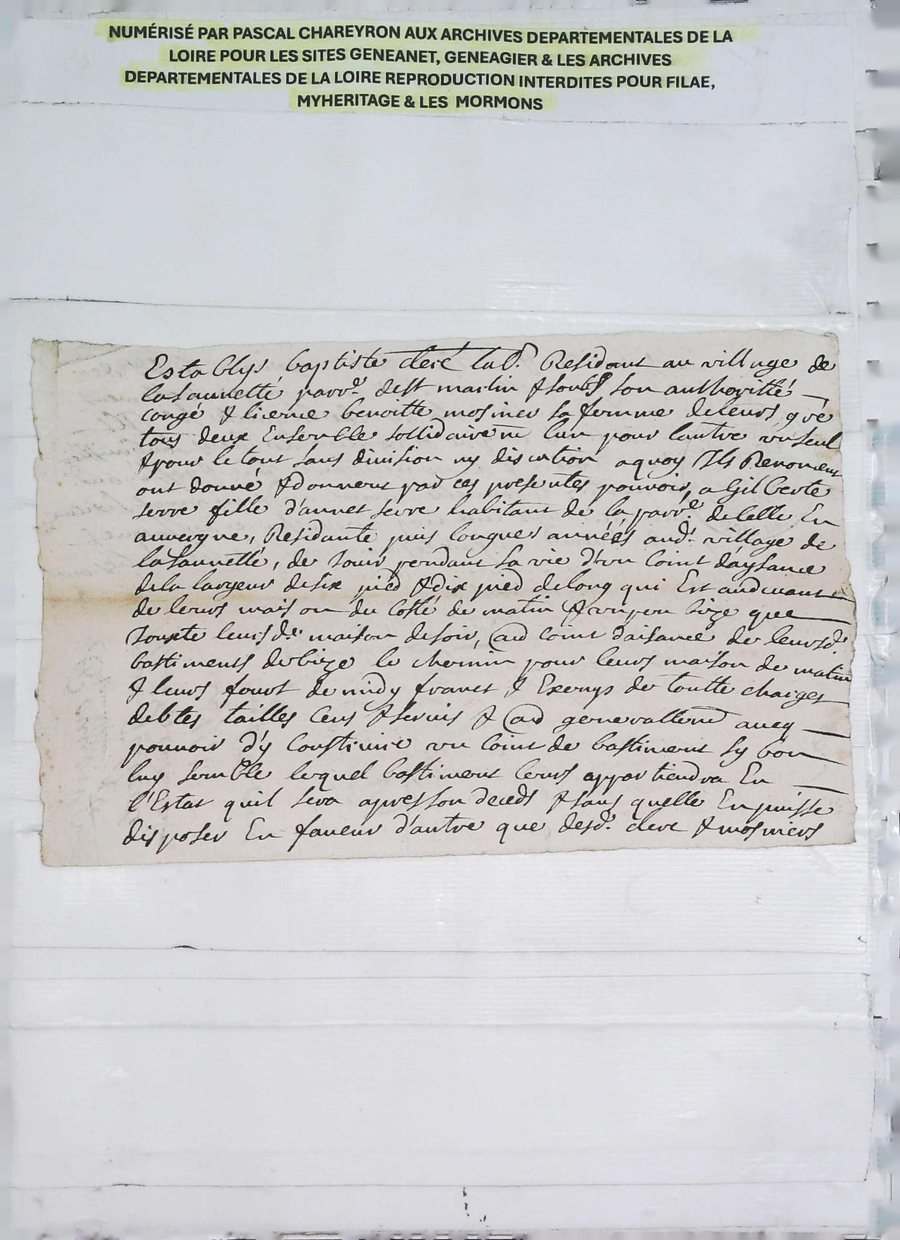 NUMÉRISÉ PAR PASCAL CHAREYRON AUX ARCHIVES DEPARTEMENTALES DE LA
LOIRE POUR LES SITES GENEANET, GENEAGIER & LES ARCHIVES
DEPARTEMENTALES DE LA LOIRE REPRODUCTION INTERDITES POUR FILAE,
MYHERITAGE & LES MORMONS
Establys baptiste cleré lab.r Residant au village de
la Saunetté parr.e de st martin & soubs son authorité
congé & licence benoitte mosnier sa femme de leurs gré
tous deux Ensemble sollidairem lun pour lautre un seul
& pour le tout sans division ny discution a quoy Ils Renoncent
ont donné & donnent par ces presentes pouvoir a Gilberte
serre fille d'annet serre habitant de la parr.e de celle En
auvergne, Residante puis longues années aud. village de
la Saunetté, de Jouir pendant sa vie d'un coint d'aysance
de la largeur de six pied & dix pied de long qui Est au devant
de leurs maison du costé de matin & un peu bize que
Jouxte leurs d. maison de soir, coint d'aisance de leurs d.
bastiments de bize le chemin pour leurs maison de matin
& leurs fourt de midy franct & Exemps de toutte charges
debtes tailles cens & servis & generallem avecq
pouvoir d'y construire un coint de bastiment sy bon
luy semble lequel bastiment leurs appartiendra En
l'Estat quil sera apres son deceds & sans quelle En puisse
disposer En faveur d'autre que desd. cleré & mosniers